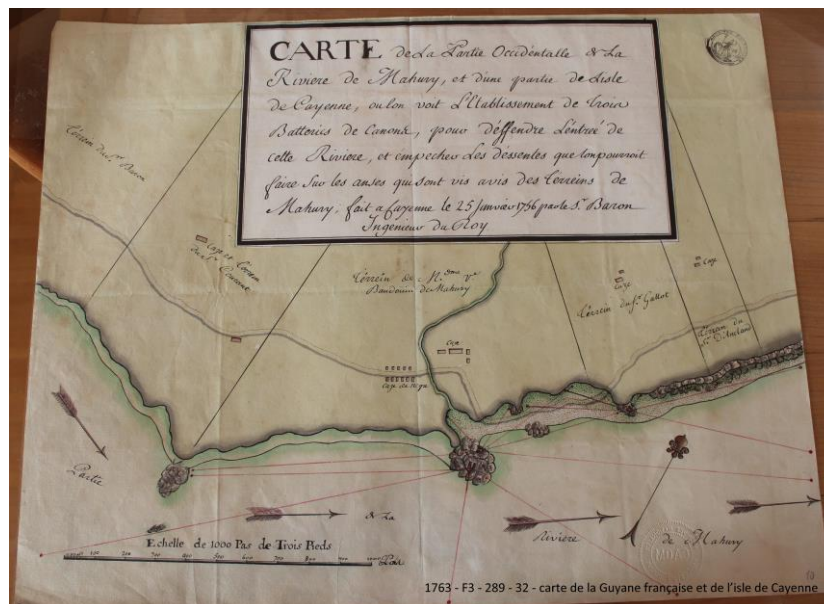 CARTE de La Partie Occidentalle de La
Riviere de Mahury, et dune partie de Lisle
de Cayenne, ou lon voit L'Etablissement de Trois
Batteries de Canons, pour déffendre L'entreé de
cette Riviere, et empecher Les dessentes que lon pourroit
faire Sur les anses qui sont vis avis des terreins de
Mahury. fait a Cayenne le 25 Janvier 1756 par le Sr. Baron
Ingenieur du Roy
Terrein du Sr. Baron
Case et Terrein
du Sr. Courant
Terrein de M.dame Ve
Baudouin de Mahury
Terrein du Sr. Gallot
Case
Terrein du
Case
Case de Negre
Partie
de La
Riviere
de Mahury
Echelle de 1000 Pas de Trois Pieds
100 200 700 400 500 600 700 800 900 1000 Pas
1763 - F3 - 289 - 32 - carte de la Guyane française et de l'isle de Cayenne